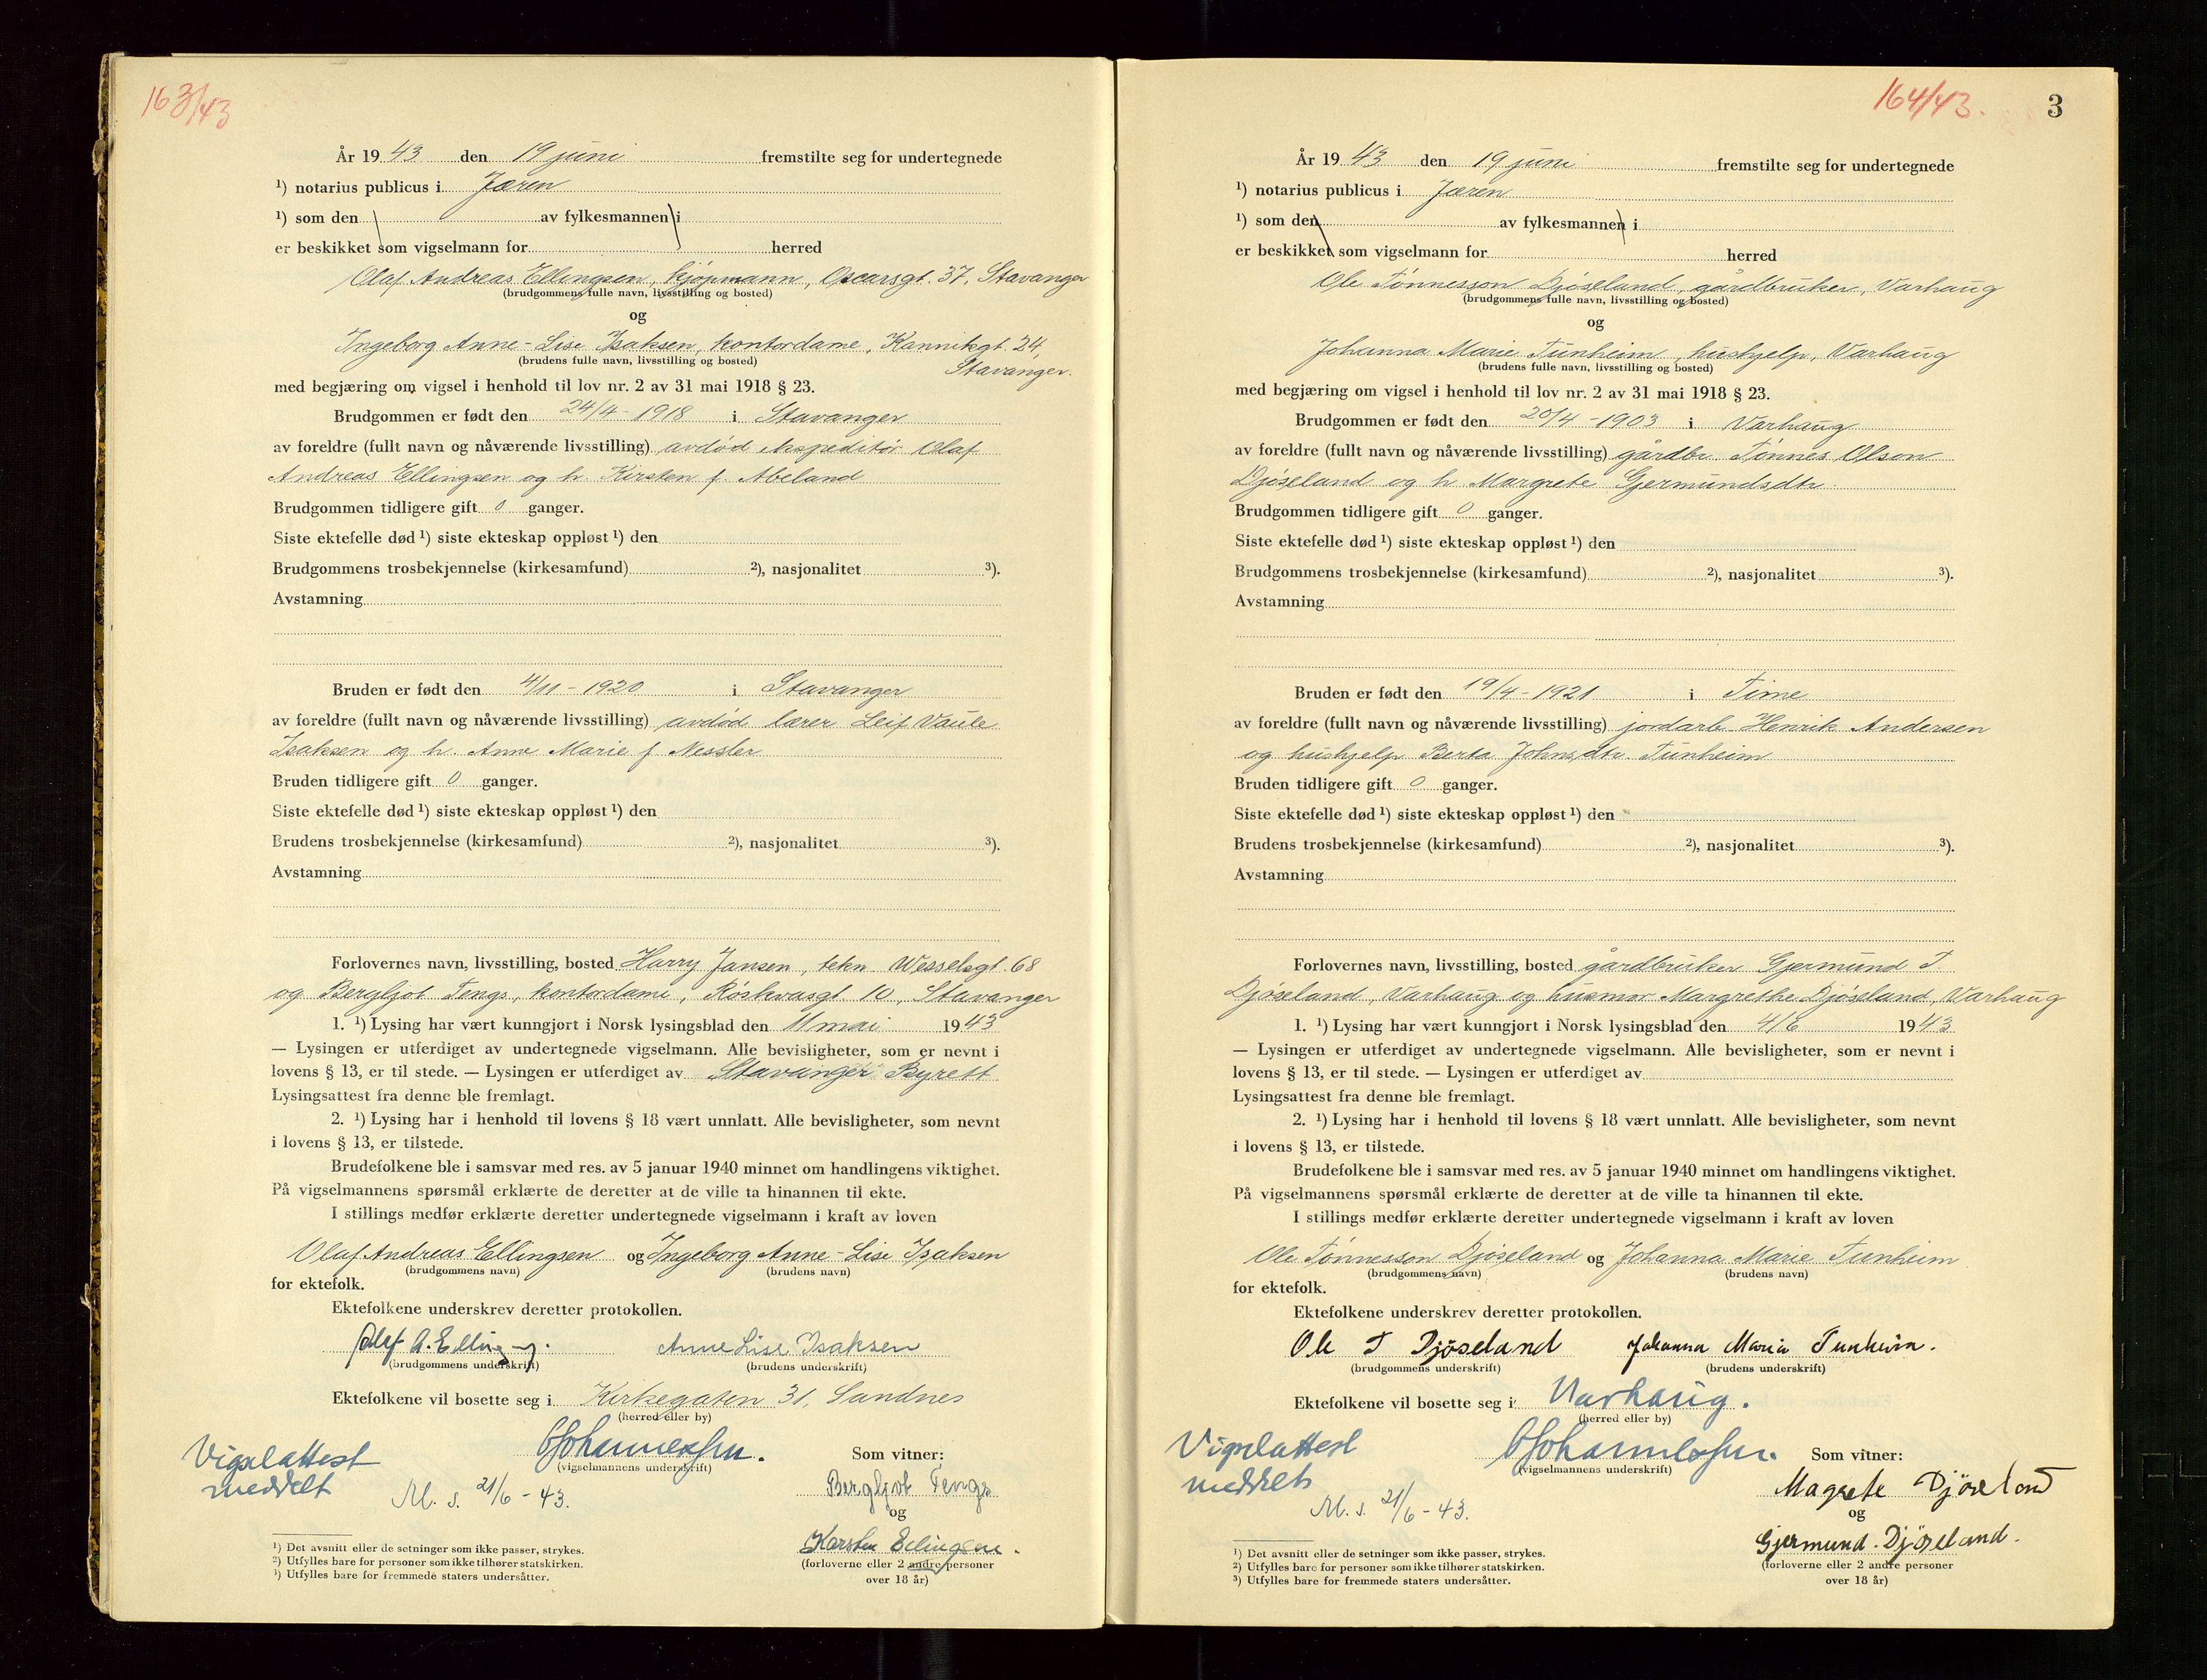 163/43
År 19 43 den 19 juni fremstilte seg for undertegnede
¹) notarius publicus i Jæren
¹) som den av fylkesmannen i
er beskikket som vigselmann for herred
Olaf Andreas Ellingsen, kjøpmann, Oscarsgt. 37, Stavanger
(brudgommens fulle navn, livsstilling og bosted)
og
Ingeborg Anne-Lise Isaksen, kontordame, Kannikgt. 24,
(brudens fulle navn, livsstilling og bosted)
Stavanger.
med begjæring om vigsel i henhold til lov nr. 2 av 31 mai 1918 § 23.
Brudgommen er født den 24/4 - 1918 i Stavanger
av foreldre (fullt navn og nåværende livsstilling) avdød ekspeditør Olaf
Andreas Ellingsen og h. Kirsten f. Abeland
Brudgommen tidligere gift 0 ganger.
Siste ektefelle død ¹) siste ekteskap oppløst ¹) den
Brudgommens trosbekjennelse (kirkesamfund) ²), nasjonalitet ³).
Avstamning
Bruden er født den 4/11 - 1920 i Stavanger
av foreldre (fullt navn og nåværende livsstilling) avdød lærer Leif Vaule
Isaksen og h. Anne Marie f. Nessler
Bruden tidligere gift 0 ganger.
Siste ektefelle død ¹) siste ekteskap oppløst ¹) den
Brudens trosbekjennelse (kirkesamfund) ²), nasjonalitet ³).
Avstamning
Forlovernes navn, livsstilling, bosted Harry Jansen, tekn Wesselsgt. 68
og Bergljot Tengs, kontordame, Röskvasgt 10, Stavanger
1. ¹) Lysing har vært kunngjort i Norsk lysingsblad den 11 mai 1943
— Lysingen er utferdiget av undertegnede vigselmann. Alle bevisligheter, som er nevnt i
lovens § 13, er til stede. — Lysingen er utferdiget av Stavanger Byrett
Lysingsattest fra denne ble fremlagt.
2. ¹) Lysing har i henhold til lovens § 18 vært unnlatt. Alle bevisligheter, som nevnt
i lovens § 13, er tilstede.
Brudefolkene ble i samsvar med res. av 5 januar 1940 minnet om handlingens viktighet.
På vigselmannens spørsmål erklærte de deretter at de ville ta hinannen til ekte.
I stillings medfør erklærte deretter undertegnede vigselmann i kraft av loven
Olaf Andreas Ellingsen og Ingeborg Anne-Lise Isaksen
(brudgommens navn) (brudens navn)
for ektefolk.
Ektefolkene underskrev deretter protokollen.
Olaf A. Elling Anne Lise Isaksen
(brudgommens underskrift) (brudens underskrift)
Ektefolkene vil bosette seg i Kirkegaten 31, Sandnes
(herred eller by)
Vigselattest
meddelt
Johannessen.
(vigselmannens underskrift)
M. s. 21/6 - 43.
Som vitner:
Bergljot Tengs
og
Karsten Ellingsen.
(forloverne eller 2 andre personer
over 18 år)
¹) Det avsnitt eller de setninger som ikke passer, strykes.
²) Utfylles bare for personer som ikke tilhører statskirken.
³) Utfylles bare for fremmede staters undersåtter.
164/43. 3
År 19 43 den 19 juni fremstilte seg for undertegnede
¹) notarius publicus i Jæren
¹) som den av fylkesmannen i
er beskikket som vigselmann for herred
Ole Tønnesson Djøseland, gårdbruker, Varhaug
(brudgommens fulle navn, livsstilling og bosted)
og
Johanna Marie Tunheim, hushjelp, Varhaug
(brudens fulle navn, livsstilling og bosted)
med begjæring om vigsel i henhold til lov nr. 2 av 31 mai 1918 § 23.
Brudgommen er født den 20/4 - 1903 i Varhaug
av foreldre (fullt navn og nåværende livsstilling) gårdbr Tønnes Olson
Djøseland og h Margrete Gjermundsdtr.
Brudgommen tidligere gift 0 ganger.
Siste ektefelle død ¹) siste ekteskap oppløst ¹) den
Brudgommens trosbekjennelse (kirkesamfund) ²), nasjonalitet ³).
Avstamning
Bruden er født den 19/4 - 1921 i Time
av foreldre (fullt navn og nåværende livsstilling) jordarb Henrik Andersen
og hushjelp Berta Johnsdtr. Tunheim
Bruden tidligere gift 0 ganger.
Siste ektefelle død ¹) siste ekteskap oppløst ¹) den
Brudens trosbekjennelse (kirkesamfund) ²), nasjonalitet ³).
Avstamning
Forlovernes navn, livsstilling, bosted gårdbruker Gjermund T.
Djøseland, Varhaug og husmor Margrethe Djøseland, Varhaug
1. ¹) Lysing har vært kunngjort i Norsk lysingsblad den 4/6 1943
— Lysingen er utferdiget av undertegnede vigselmann. Alle bevisligheter, som er nevnt i
lovens § 13, er til stede. — Lysingen er utferdiget av
Lysingsattest fra denne ble fremlagt.
2. ¹) Lysing har i henhold til lovens § 18 vært unnlatt. Alle bevisligheter, som nevnt
i lovens § 13, er tilstede.
Brudefolkene ble i samsvar med res. av 5 januar 1940 minnet om handlingens viktighet.
På vigselmannens spørsmål erklærte de deretter at de ville ta hinannen til ekte.
I stillings medfør erklærte deretter undertegnede vigselmann i kraft av loven
Ole Tønnesson Djøseland og Johanna Marie Tunheim
(brudgommens navn) (brudens navn)
for ektefolk.
Ektefolkene underskrev deretter protokollen.
Ole T Djöseland Johanna Marie Tunheim.
(brudgommens underskrift) (brudens underskrift)
Ektefolkene vil bosette seg i Varhaug.
(herred eller by)
Vigselattest
meddelt
Johannessen.
(vigselmannens underskrift)
M. s. 21/6 - 43.
Som vitner:
Magrete Djöseland
og
Gjermund. Djöseland.
(forloverne eller 2 andre personer
over 18 år)
¹) Det avsnitt eller de setninger som ikke passer, strykes.
²) Utfylles bare for personer som ikke tilhører statskirken.
³) Utfylles bare for fremmede staters undersåtter.